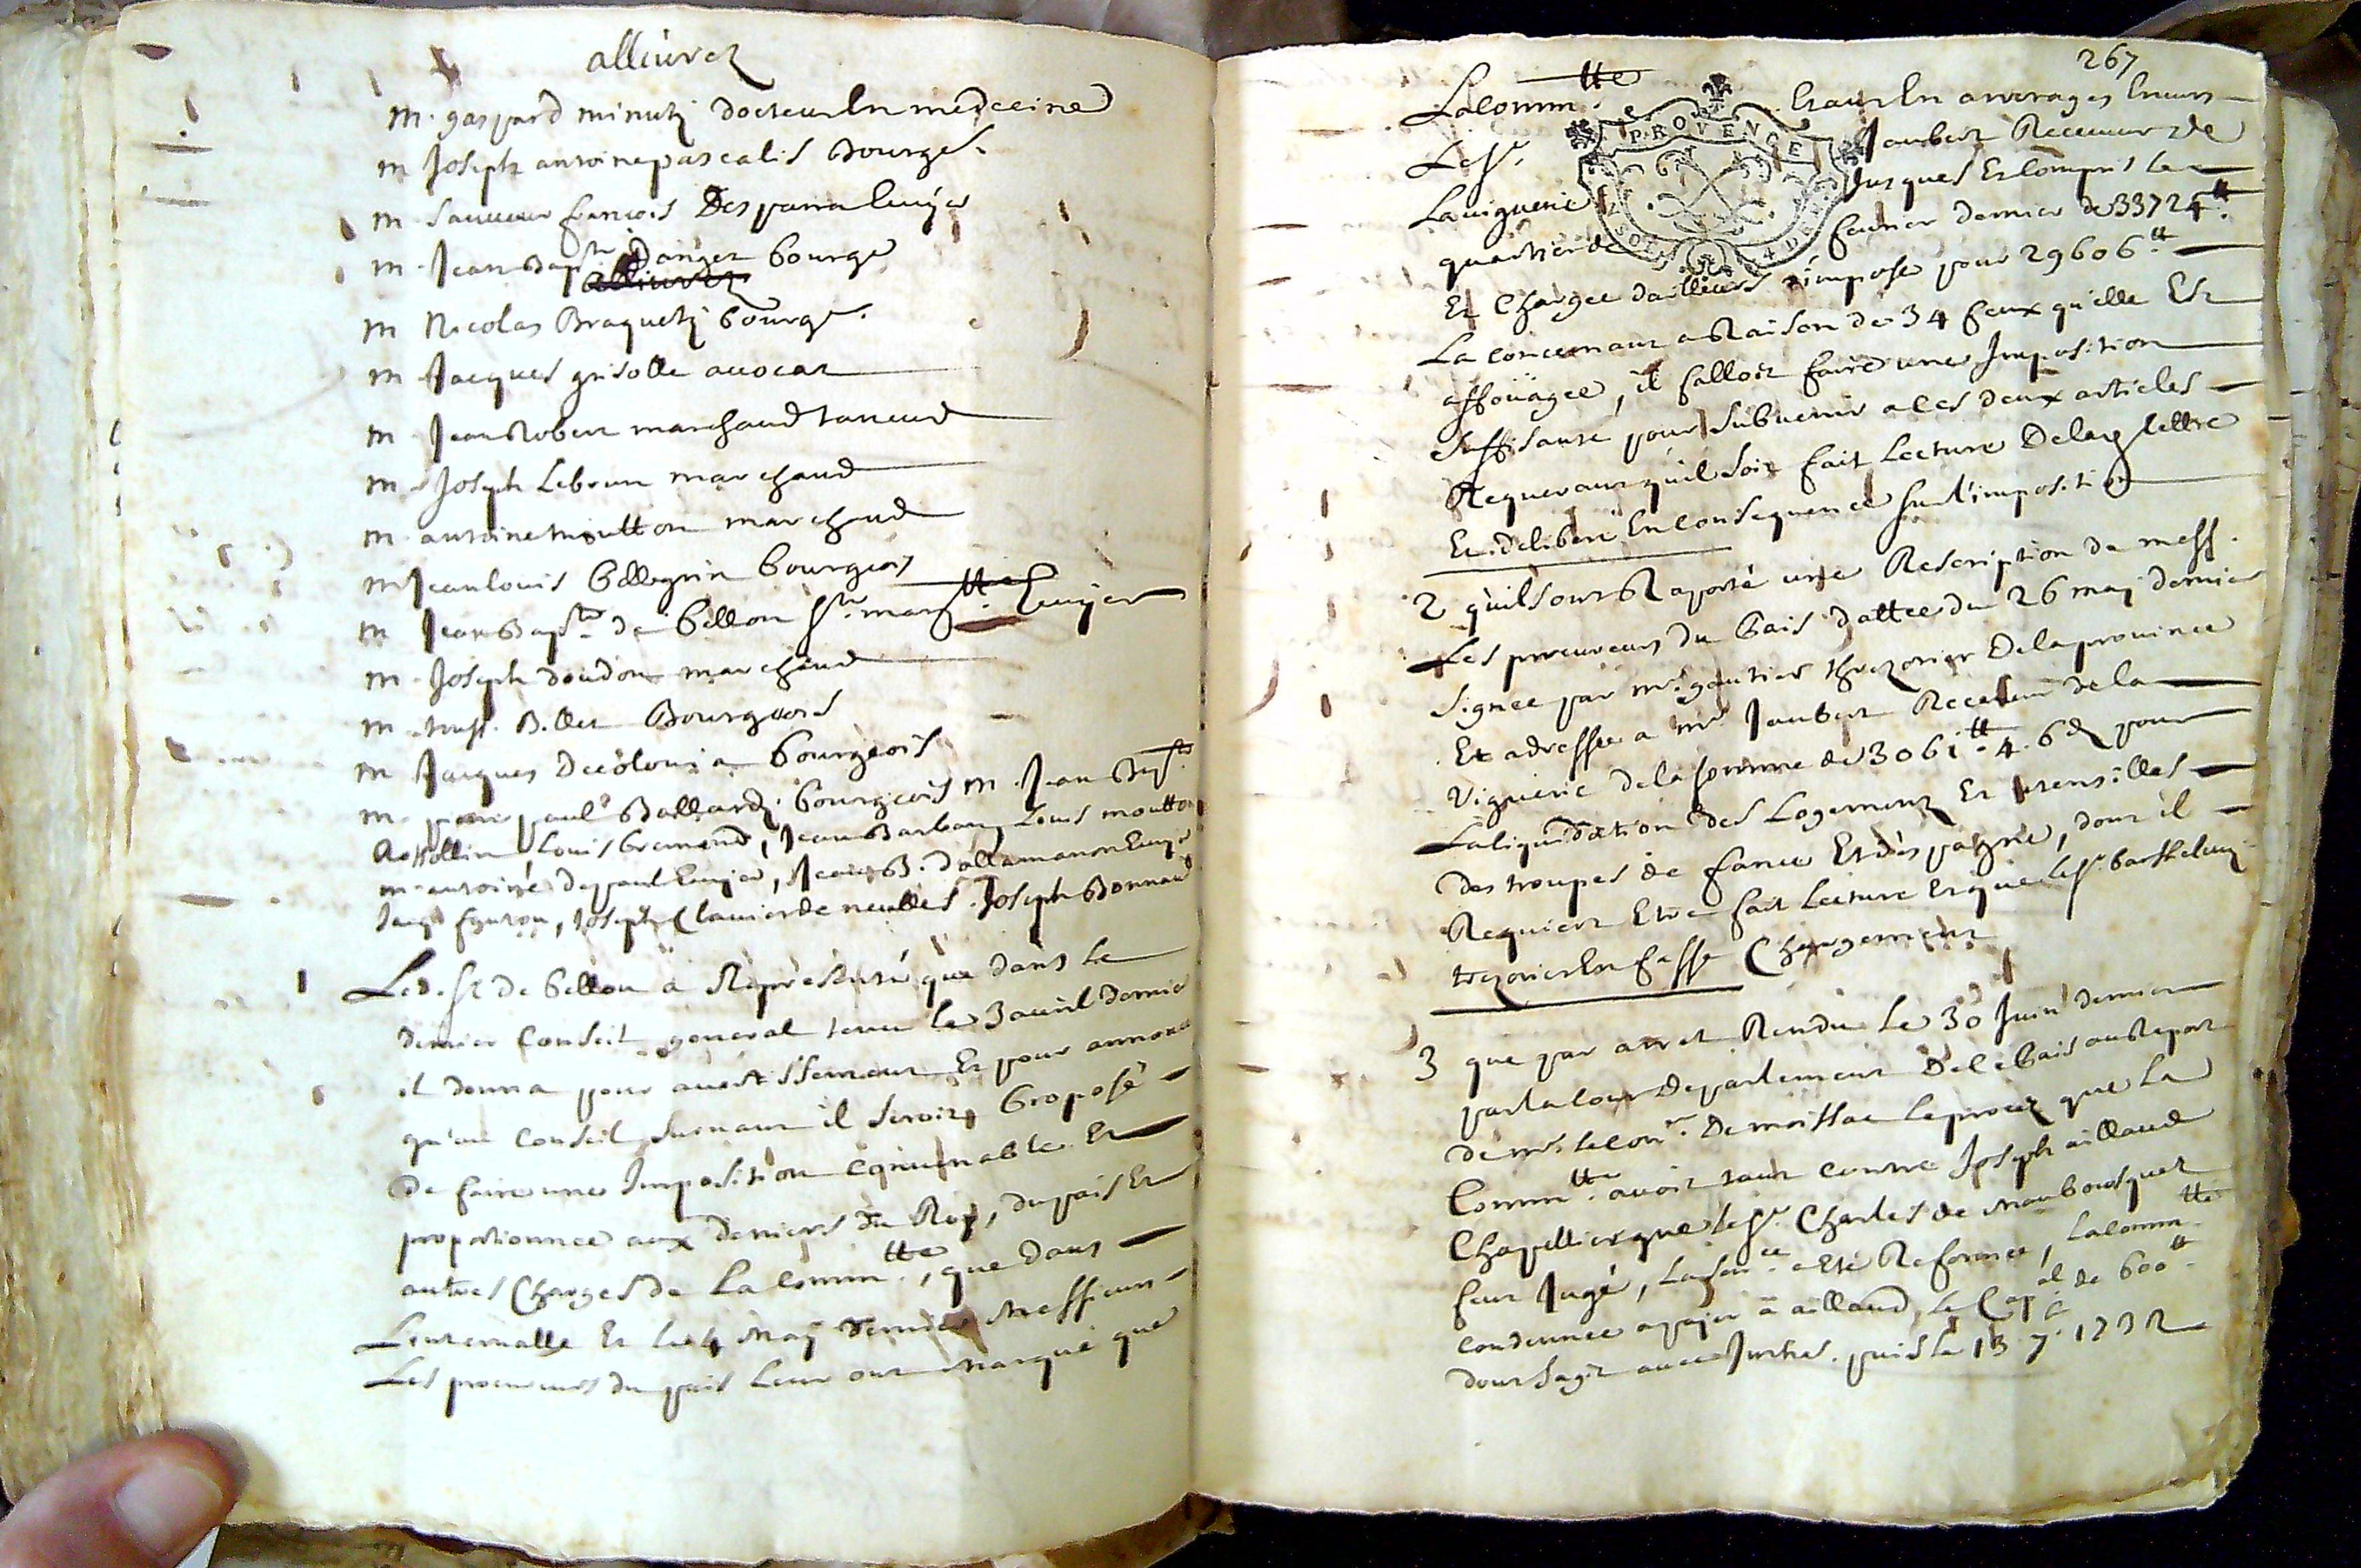 alliurez
m. gaspard minuty docteur En medecine
m Joseph antoine pascalis Bourge.
m. sauueur francois Desparra Ecuÿer
m. Jean Bapte. Danger bourge
m Nicolas Braquety bourge.
m. Jacques grisolle auocat
m. Jean Robert marchand tanneur
m. Joseph Lebrun marchand
m. antoine moutton marchand
m Jean louis Pellegrin bourgeois
m Jean Bapte. de bellon Ecuÿer
m. Joseph doudon marchand
m. Billet Bourgeois
m Jacques Decolonia bourgeois
m. pierre paul Ballardy bourgeois m. Jean Bapt.
Louis bremond, Jean Barbaroux Louis moutton
m. antoine depaul Ecuyer, Jean B. dallamanon Ecuyer
Joseph Clauier de neulles. Joseph Bonnaud
1 Led. sr de bellon a Représenté que dans le
dernier Conseil general tenu le 3 auril dernier
il donna pour auertissement Et pour annonce
qu'au Conseil suiuant il seroit Proposé
De faire une Imposition conuenable Et
proportionnee aux deniers du Roy, du païs Et
autres Charges de La Commtte., que dans
Linterualle Et le 4 May dernier Messieurs
Les procureurs du païs leur ont Marqué que
267
La Commtte. Etant En arrerages Enuers
Le Sr. Jaubert Receueur de
La uiguerie Jusques Et Compris le
quartier de feurier dernier de 33724tt.
PROVENCE
Et Chargee dailleurs d'impose pour 29606tt.
La concernant a Raison de 34 feux qu'elle Est
affoüagee, il falloit faire une Imposition
suffisante pour subuenir a ces deux articles
Requerant qu'il soit fait Lecture De la lettre
Et deliberé En consequence sur l'imposition
2 qu'ils ont Raporté une Rescription de mess.
Les procureurs du Païs dattee du 26 may dernier
signee par mr. gautier threzorier De la prouince
Et adressee a mr Jaubert Receueur de la
Viguerie de la somme de 3061tt. 4. 6d pour
La liquidation des Logements Et utensilles
des troupes de france Et d'espagne, dont il
Requiert Etre fait Lecture Et que le sr. barthelemy
trezorier En fasse Chargement
3 que par arret Rendu Le 30 Juin dernier
par la Cour de parlement De ce Païs au Raport
de mr. le conr. De moissac le procez que La
Commtte. auoit tant contre Joseph aillaud
Chapellier que le Sr. Charles de Maubousquet
feut Jugé, La sence. a Eté Reformee, La Commtte.
condemnee a payer a aillaud, Le Capal. de 600tt.
dont s'agit auec Intrets. puis le 13 7. 1732